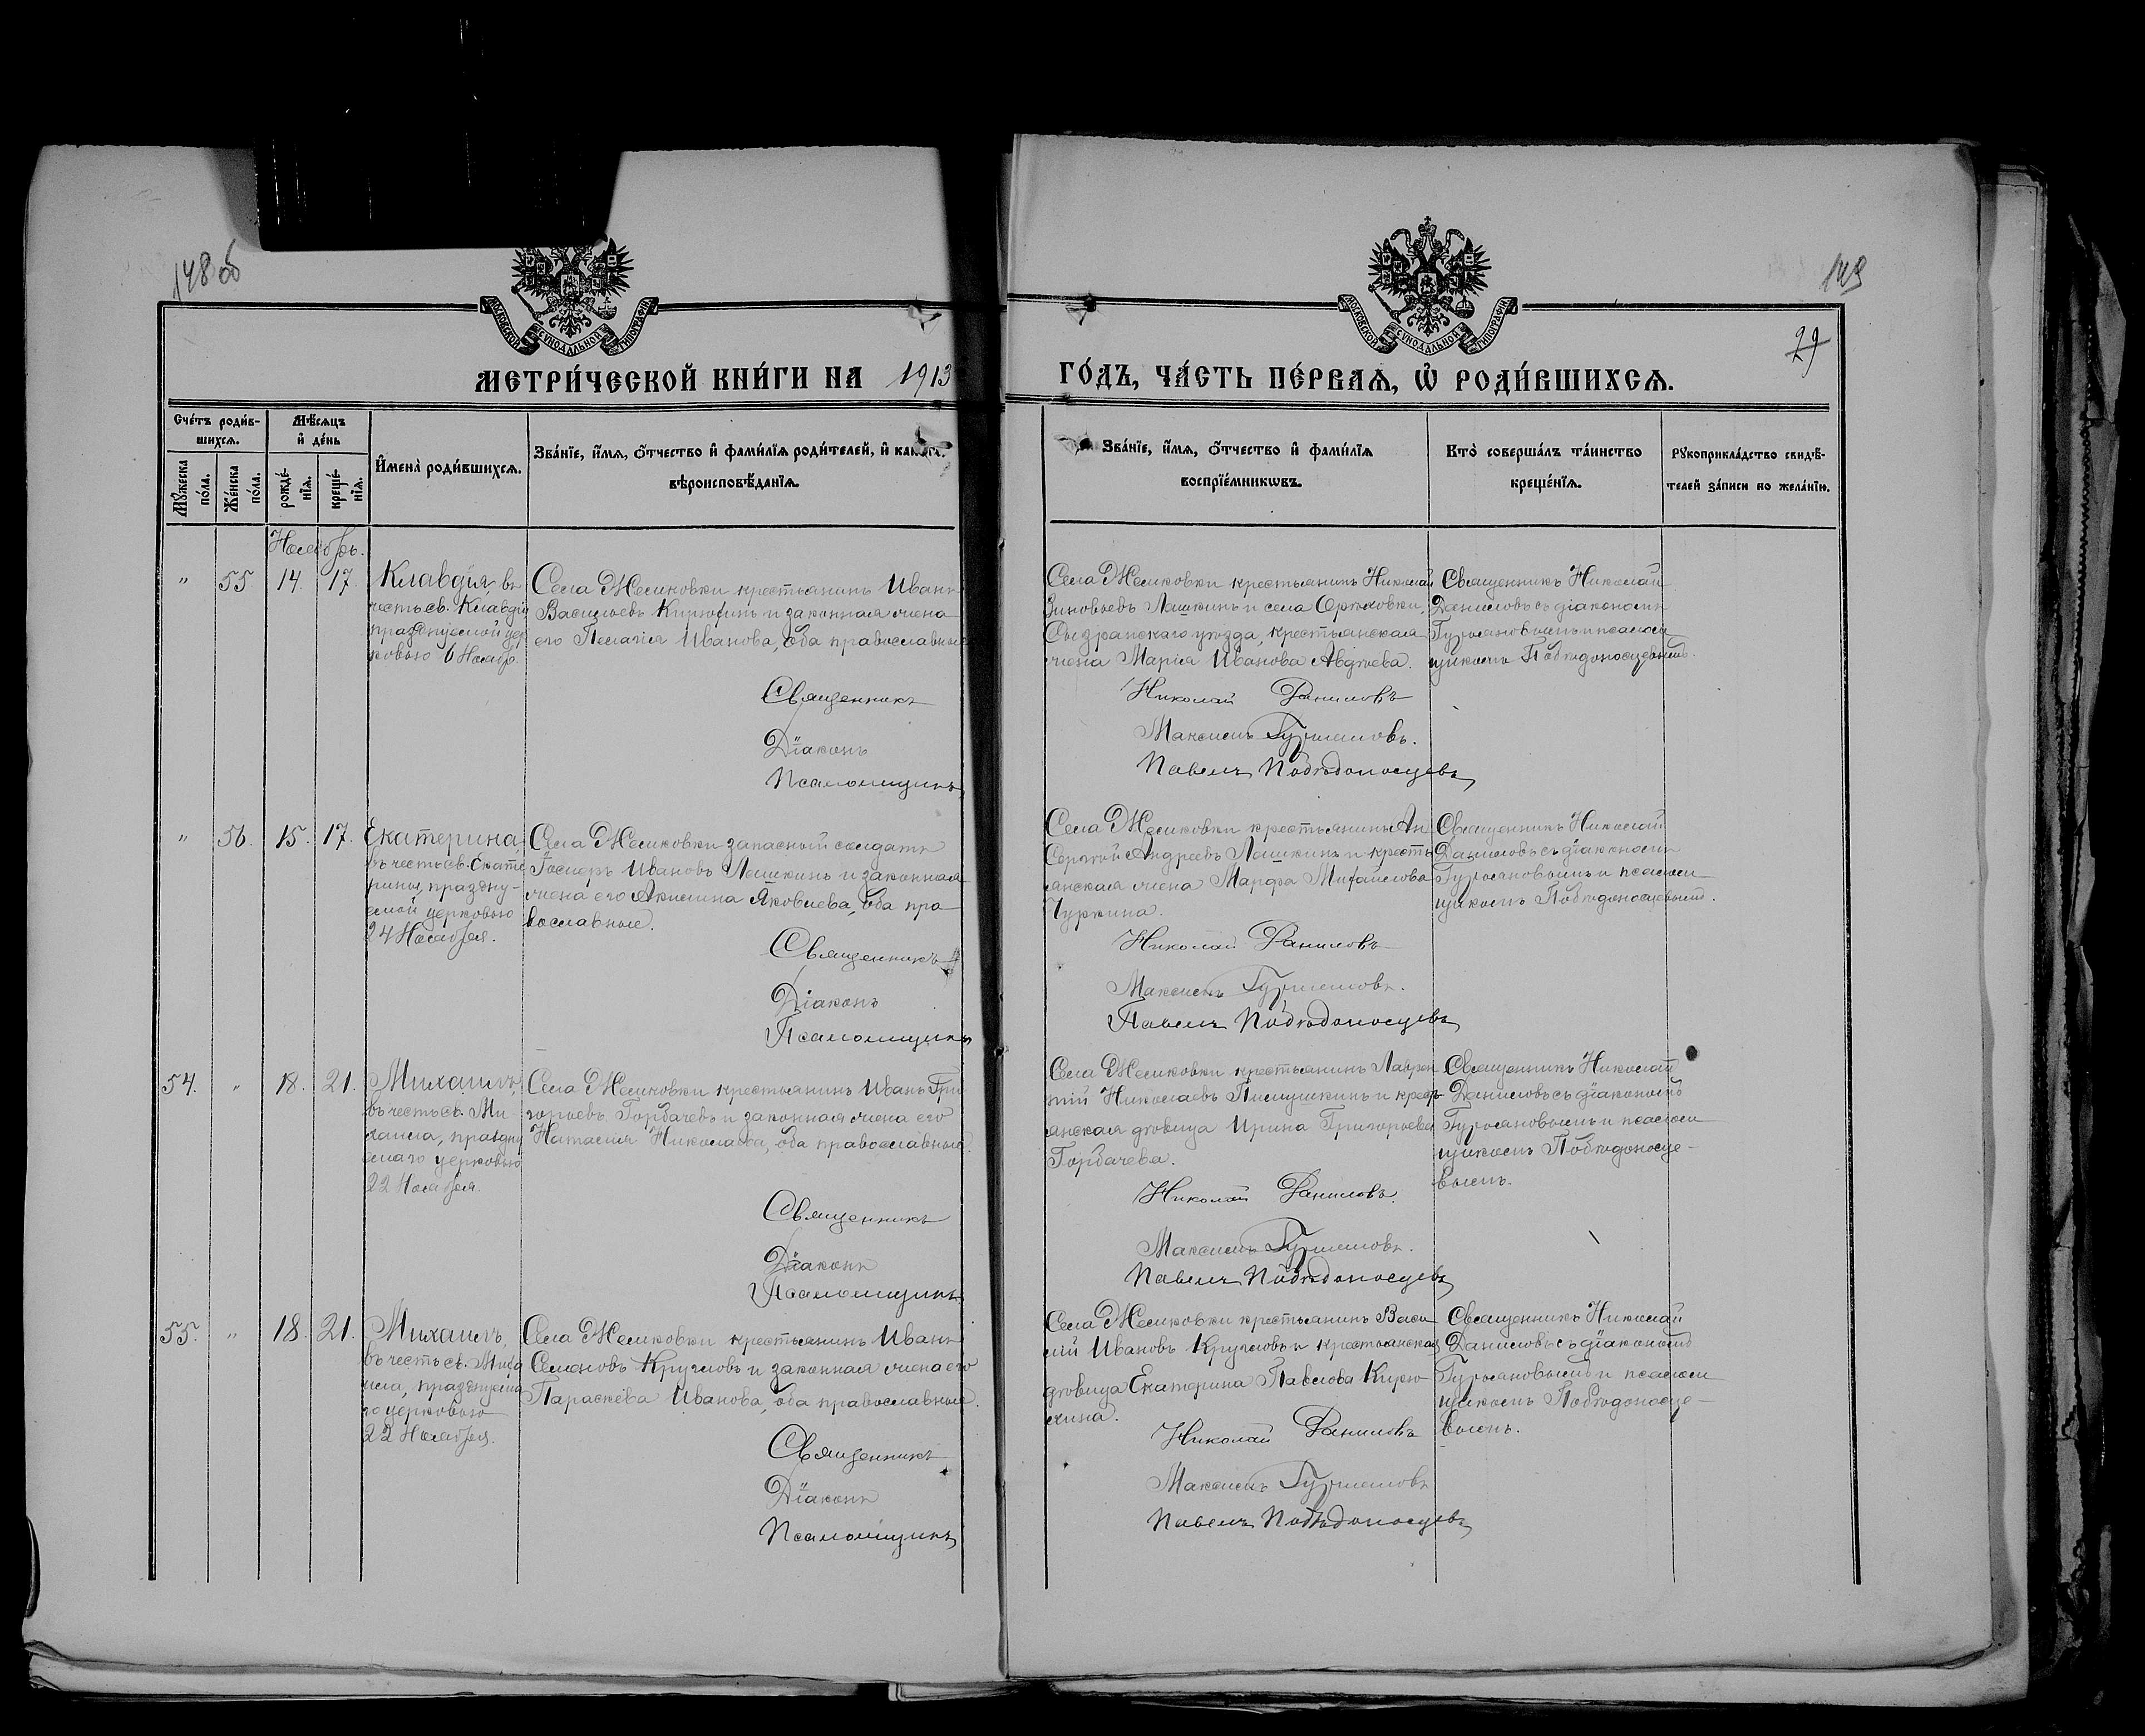 148 об
149
29
МОСКОВСКОЙ СУНОДАЛЬНОЙ ТИПОГРАФІИ
МОСКОВСКОЙ СУНОДАЛЬНОЙ ТИПОГРАФІИ
МЕТРИ́ЧЕСКОЙ КНИ́ГИ НА 1913
ГО́ДЪ, ЧА́СТЬ ПЕ́РВАѦ, Ѡ҆ РОДИ́ВШИХСѦ.
Сче́тъ роди́в-
шихсѧ.
Мѣ́сѧцъ
и҆ де́нь
Мꙋ́жеска
по́ла.
Же́нска
по́ла.
рожде́-
нїѧ.
креще́-
нїѧ.
И҆мена̀ роди́вшихсѧ.
Зва́нїе, и҆́мѧ, о҆́тчество и҆ фами́лїѧ роди́телей, и҆
вѣроисповѣ́данїѧ.
Зва́нїе, и҆́мѧ, о҆́тчество и҆ фами́лїѧ
воспрїе́мникѡвъ.
Кто̀ соверша́лъ та́инство
креще́нїѧ.
Рꙋкоприкла́дство свидѣ́-
телей за́писи по жела́нїю.
Ноябрь.
" 55 14. 17.
Клавдія, въ
честь св. Клавдіи
празднуемой цер
ковью 6 Ноябр.
Села крестьянинъ Иванъ
Васильевъ и законная жена
его Пелагія Иванова, оба православные
Священникъ
Діаконъ
Псаломщикъ
Села крестьянинъ Николай
Зиновьевъ Лашкинъ и села
Сызранскаго уѣзда, крестьянская
жена Марія Иванова Авдѣева.
Николай Даниловъ
Максимъ Гурьяновъ.
Павелъ Побѣдоносцевъ
Священникъ Николай
Даниловъ съ діакономъ
Гурьяновымъ и псаломщ
щикомъ Побѣдоносцевымъ.
" 56. 15. 17.
Екатерина,
въ честь св. Екате
рины, праздну-
емой церковью
24 Ноября.
Села запасный солдатъ
Иванов Лашкинъ и законная
жена его Акилина Яковлева, оба пра
вославные.
Священникъ
Діаконъ
Псаломщикъ
Села крестьянинъ
Сергѣй Андреевъ Лашкинъ и кресть
янская жена Марфа Михайлова
Чуркина.
Николай Даниловъ
Максимъ Гурьяновъ.
Павелъ Побѣдоносцевъ
Священникъ Николай
Даниловъ съ діакономъ
Гурьяновымъ и псалом
щикомъ Побѣдоносцевымъ.
54. " 18. 21.
Михаилъ,
въ честь св. Ми-
хаила, праздну
емаго церковью
22 Ноября.
Села крестьянинъ Иванъ Гри
горьевъ Горбачевъ и законная жена его
Наталія Николаева, оба православные.
Священникъ
Діаконъ
Псаломщикъ
Села крестьянинъ Лаврен
тій Николаевъ и крест
янская дѣвица Ирина Григорьева
Горбачева.
Николай Даниловъ.
Максимъ Гурьяновъ.
Павелъ Побѣдоносцевъ
Священникъ Николай
Даниловъ съ діакономъ
Гурьяновымъ и псалом
щикомъ Побѣдоносце-
вымъ.
55. " 18. 21.
Михаилъ,
въ честь св. Миха
ила, празднуема
го церковью
22 Ноября.
Села крестьянинъ Иванъ
Семеновъ Кругловъ и законная жена его
Параскева Иванова, оба православные.
Священникъ
Діаконъ
Псаломщикъ
Села крестьянинъ Васи
лій Ивановъ Кругловъ и крестьянская
дѣвица Екатерина Павлова
Николай Даниловъ
Максимъ Гурьяновъ
Павелъ Побѣдоносцевъ
Священникъ Николай
Даниловъ съ діакономъ
Гурьяновымъ и псалом
щикомъ Побѣдоносце-
вымъ.